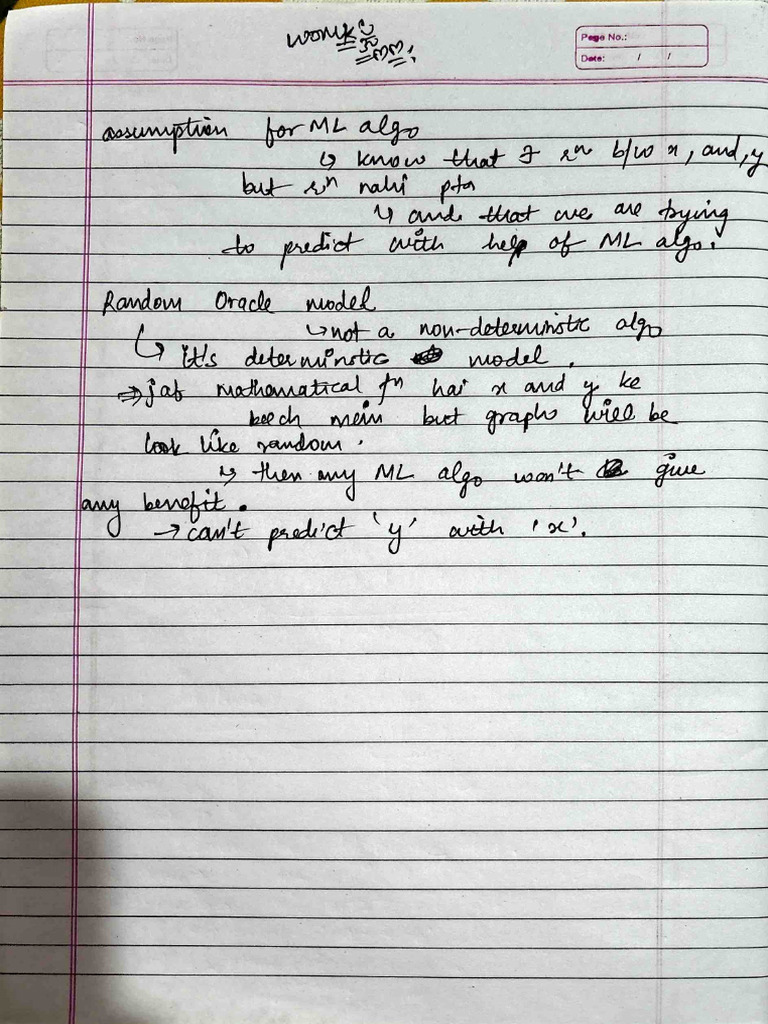 Page No.:
Date: / /
assumption for ML algo
↳ know that ∃ rⁿ b/w x, and, y
but rⁿ nahi pta
↳ and that we are trying
to predict with help of ML algo.
Random Oracle model
↳ not a non-deterministic algo
↳ it's deterministic model.
⇒ jab mathematical fⁿ hai x and y ke
beech mein but graphs will be
look like random.
↳ then any ML algo won't give
any benefit.
→ can't predict 'y' with 'x'.